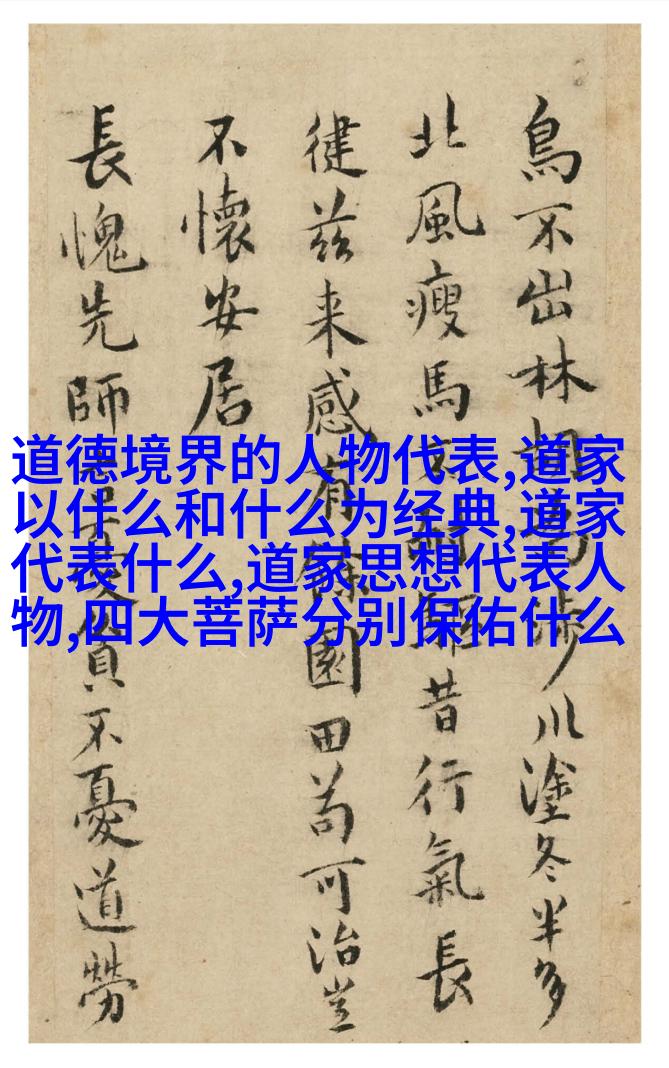 鳥不出林胡為涉川塗冬半多
北風瘦馬驅昔行氣長
徤兹来感有餘園田苟可治豈
不懷安居
長愧先師憂貧不憂道勞
道德境界的人物代表,道家
以什么和什么为经典,道家
代表什么,道家思想代表人
物,四大菩萨分别保佑什么